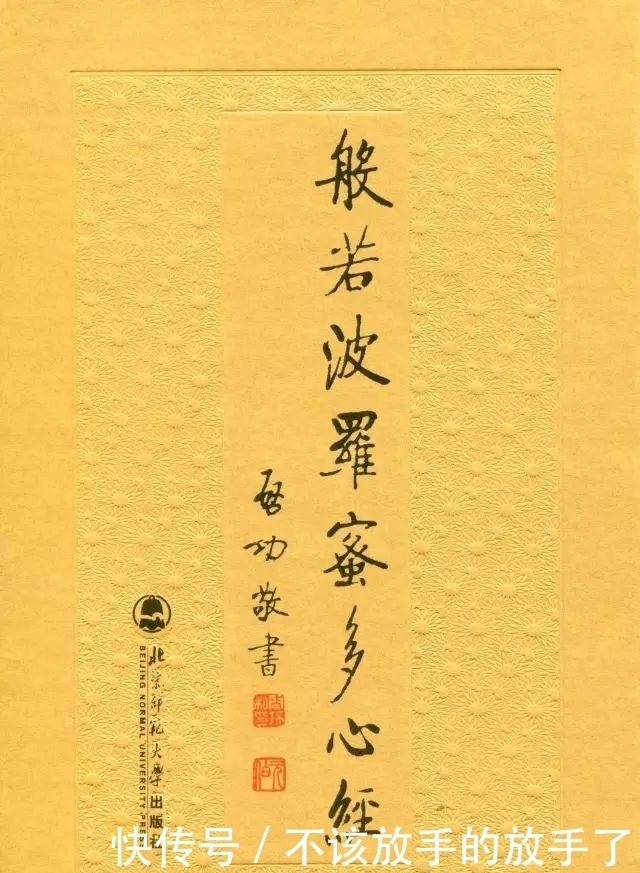 般若波羅蜜多心經
啓功敬書
北京師範大學出版社
BEIJING NORMAL UNIVERSITY PRESS
快传号 / 不该放手的放手了